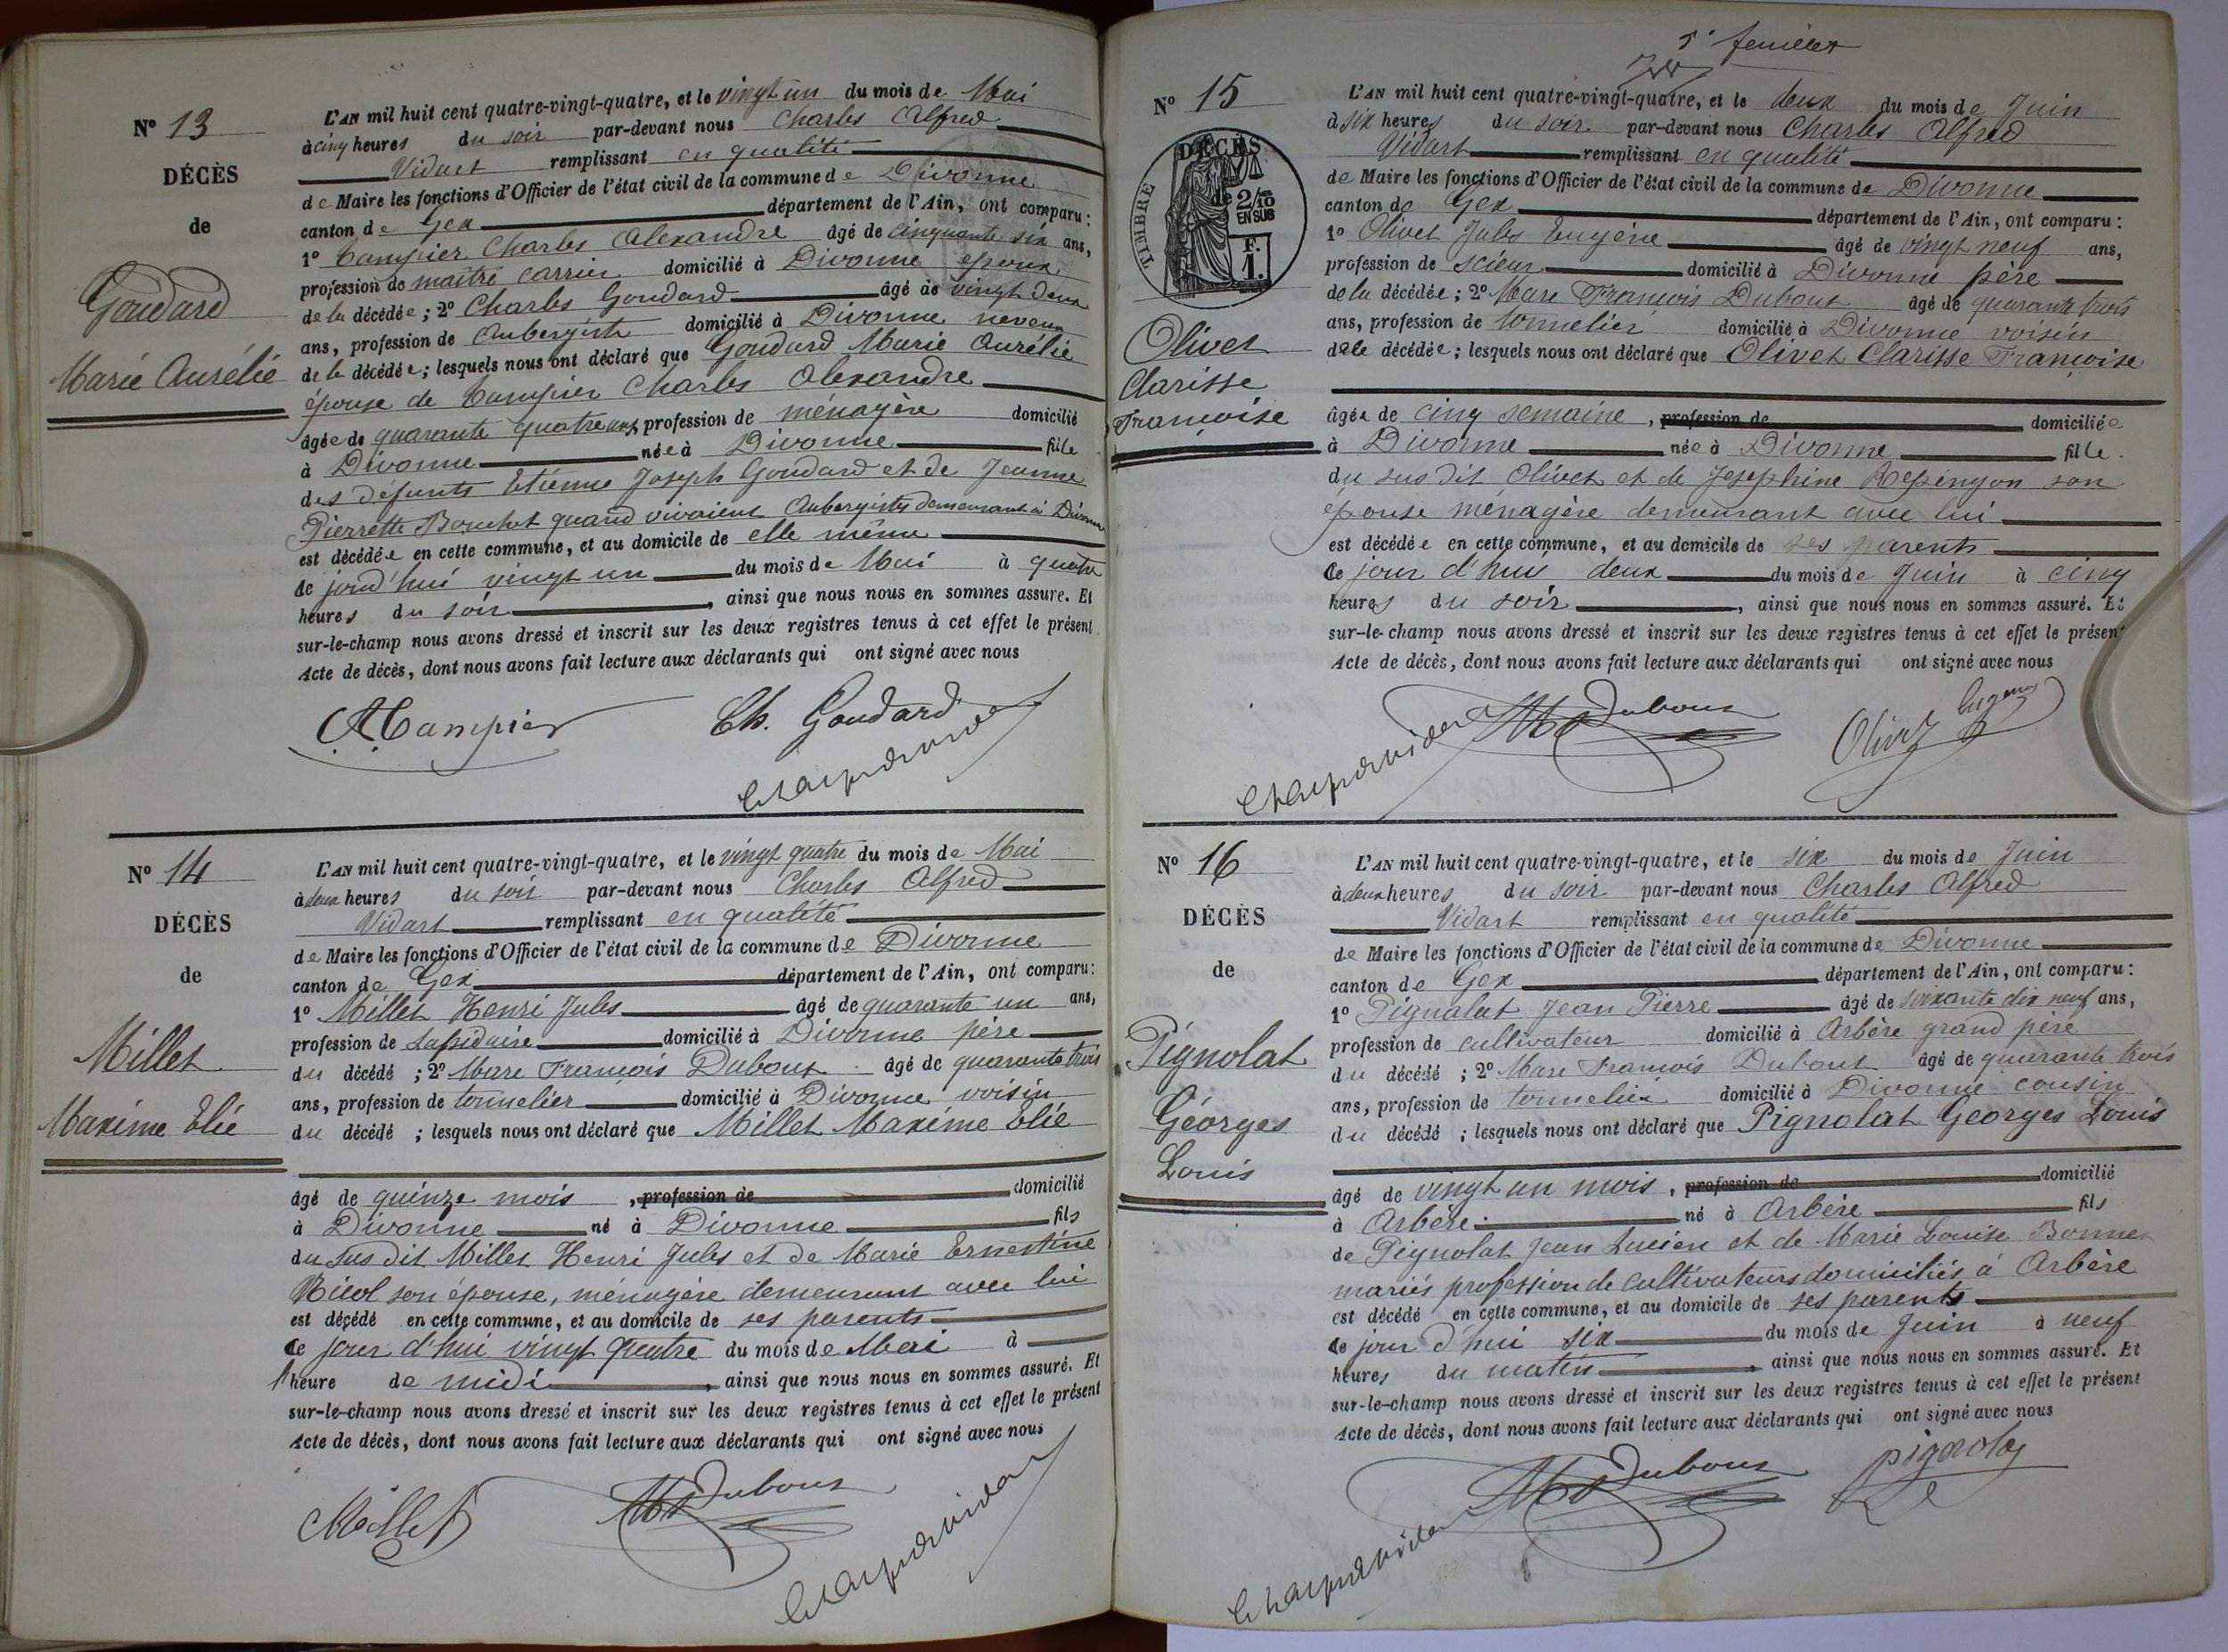 Nº 13
DÉCÈS
de
Goudard
Marie Aurélie
L'AN mil huit cent quatre-vingt-quatre, et le vingt un du mois de Mai
à cinq heures du soir par-devant nous Charles Alfred
Vidart remplissant en qualité
de Maire les fonctions d'Officier de l'état civil de la commune de Divonne
canton de Gex département de l'Ain, ont comparu :
1º Campier Charles Alexandre âgé de cinquante six ans,
profession de maître carrier domicilié à Divonne époux
de la décédée ; 2º Charles Goudard âgé de vingt deux
ans, profession de Aubergiste domicilié à Divonne neveu
de la décédée ; lesquels nous ont déclaré que Goudard Marie Aurélie
épouse de Campier Charles Alexandre
âgée de quarante quatre ans, profession de ménagère domicilié
à Divonne née à Divonne fille
des défunts Etienne Joseph Goudard et de Jeanne
Pierrette Bouchet quand vivaient Aubergistes demeurant à Divonne
est décédée en cette commune, et au domicile de elle même
ce jourd'hui vingt un du mois de Mai à quatre
heures du soir, ainsi que nous nous en sommes assuré. Et
sur-le-champ nous avons dressé et inscrit sur les deux registres tenus à cet effet le présent
Acte de décès, dont nous avons fait lecture aux déclarants qui ont signé avec nous
A Campier Ch. Goudard
Nº 14
DÉCÈS
de
Millet
Maxime Elie
L'AN mil huit cent quatre-vingt-quatre, et le vingt quatre du mois de Mai
à deux heures du soir par-devant nous Charles Alfred
Vidart remplissant en qualité
de Maire les fonctions d'Officier de l'état civil de la commune de Divonne
canton de Gex département de l'Ain, ont comparu :
1º Millet Henri Jules âgé de quarante un ans,
profession de Lapidaire domicilié à Divonne père
du décédé ; 2º Marc François Dubout âgé de quarante trois
ans, profession de tonnelier domicilié à Divonne voisin
du décédé ; lesquels nous ont déclaré que Millet Maxime Elie
âgé de quinze mois, profession de domicilié
à Divonne né à Divonne fils
du sus dit Millet Henri Jules et de Marie Ernestine
Nicol son épouse, ménagère demeurant avec lui
est décédé en cette commune, et au domicile de ses parents
ce jour d'hui vingt quatre du mois de Mai à
1 heure de midi, ainsi que nous nous en sommes assuré. Et
sur-le-champ nous avons dressé et inscrit sur les deux registres tenus à cet effet le présent
Acte de décès, dont nous avons fait lecture aux déclarants qui ont signé avec nous
Millet M F Dubout
5e feuillet
Nº 15
DÉCÈS
TIMBRE
de 2/10
EN SUS
F.
1.
Olivet
Clarisse
Françoise
L'AN mil huit cent quatre-vingt-quatre, et le deux du mois de Juin
à six heures du soir par-devant nous Charles Alfred
Vidart remplissant en qualité
de Maire les fonctions d'Officier de l'état civil de la commune de Divonne
canton de Gex département de l'Ain, ont comparu :
1º Olivet Jules Eugène âgé de vingt neuf ans,
profession de scieur domicilié à Divonne père
de la décédée ; 2º Marc François Dubout âgé de quarante trois
ans, profession de tonnelier domicilié à Divonne voisin
de le décédée ; lesquels nous ont déclaré que Olivet Clarisse Françoise
âgée de cinq semaine, profession de domiciliée
à Divonne née à Divonne fille
du sus dit Olivet et de Josephine Repingon son
épouse ménagère demeurant avec lui
est décédée en cette commune, et au domicile de ses parents
ce jour d'hui deux du mois de Juin à cinq
heures du soir, ainsi que nous nous en sommes assuré. Et
sur-le-champ nous avons dressé et inscrit sur les deux registres tenus à cet effet le présent
Acte de décès, dont nous avons fait lecture aux déclarants qui ont signé avec nous
M F Dubout Olivet Eugene
Nº 16
DÉCÈS
de
Pignolat
Géorges
Louis
L'AN mil huit cent quatre-vingt-quatre, et le six du mois de Juin
à deux heures du soir par-devant nous Charles Alfred
Vidart remplissant en qualité
de Maire les fonctions d'Officier de l'état civil de la commune de Divonne
canton de Gex département de l'Ain, ont comparu :
1º Pignalat Jean Pierre âgé de soixante dix neuf ans,
profession de cultivateur domicilié à Arbère grand père
du décédé ; 2º Marc François Dubout âgé de quarante trois
ans, profession de tonnelier domicilié à Divonne cousin
du décédé ; lesquels nous ont déclaré que Pignolat Georges Louis
âgé de vingt un mois, profession de domicilié
à Arbère né à Arbère fils
de Pignolat Jean Lucien et de Marie Louise Bonnet
mariés profession de cultivateurs domiciliés à Arbère
est décédé en cette commune, et au domicile de ses parents
ce jour d'hui six du mois de Juin à neuf
heures du matin, ainsi que nous nous en sommes assuré. Et
sur-le-champ nous avons dressé et inscrit sur les deux registres tenus à cet effet le présent
Acte de décès, dont nous avons fait lecture aux déclarants qui ont signé avec nous
M F Dubout pignolat